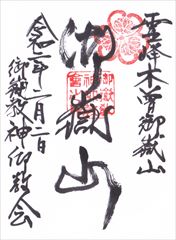 霊峰木曽御嶽山
御嶽山
令和二年二月二日
御嶽教神仰教会